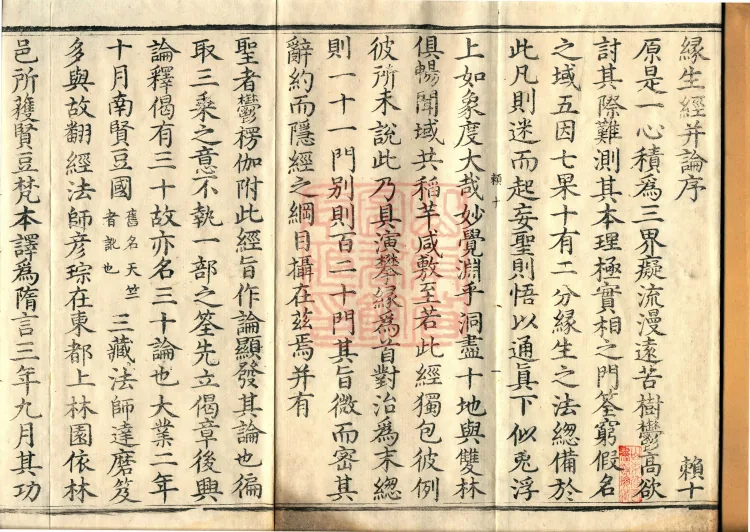 緣生經并論序 賴十
原是一心積爲三界癡流漫遠苦樹鬱高欲
討其際難測其本理極實相之門筌窮假名
之域五因七果十有二分緣生之法總備於
此凡則迷而起妄聖則悟以通眞下似兎浮
賴十
上如象度大哉妙覺淵乎洞盡十地與雙林
俱暢聞域共稻芉咸敷至若此經獨包彼例
彼所未說此乃具演攀緣爲首對治為末緫
則一十一門别則百二十門其旨微而密其
辭約而隱經之綱目攝在兹焉并有
聖者鬱楞伽附此經旨作論顯發其論也徧
取三乘之意不執一部之筌先立偈章後興
論釋偈有三十故亦名三十論也大業二年
十月南賢豆國舊名天竺者訛也三藏法師達磨笈
多與故翻經法師彦琮在東都上林園依林
邑所獲賢豆梵本譯爲隋言三年九月其功